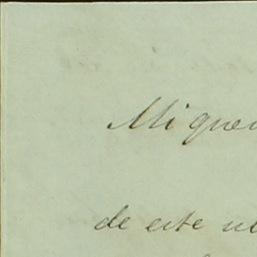 Mi quer
de este ul